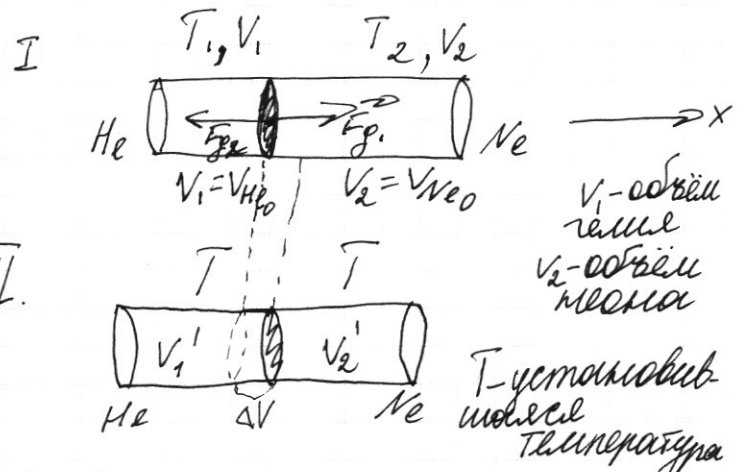 I
T₁, V₁ T₂, V₂
He Fg₂ Fg₁ Ne → x
V₁ = V_He₀ V₂ = V_Ne₀
V₁ - объём
гелия
V₂ - объём
неона
II.
T T
V₁' V₂'
He ΔV Ne
T - установив-
шаяся
температура